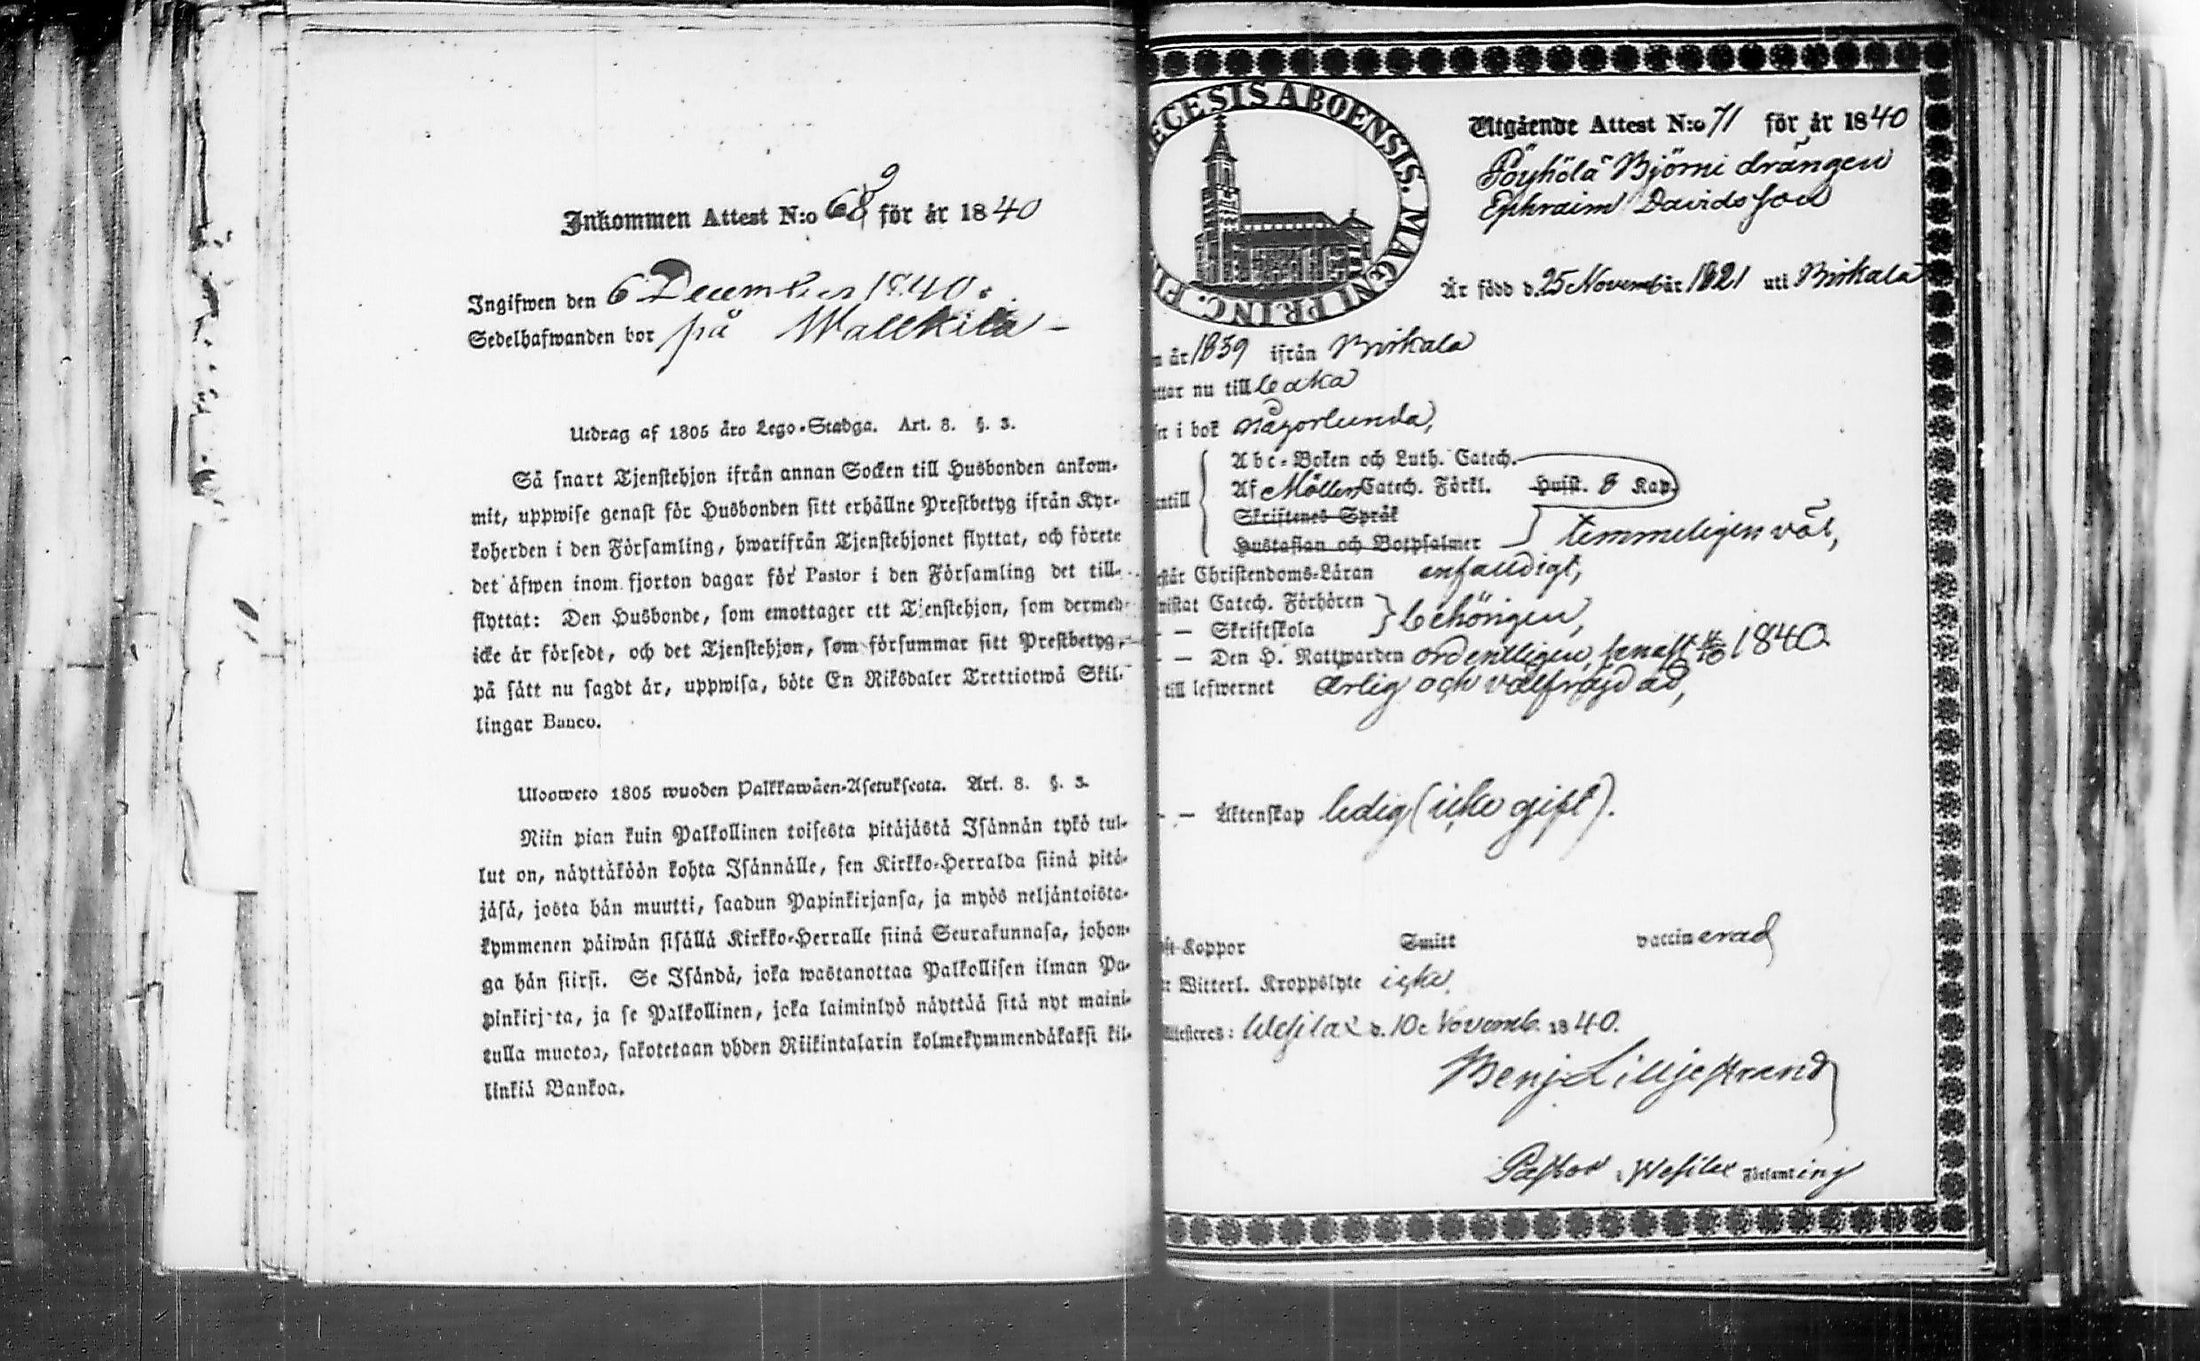 Inkommen Attest N:o 69 för år 1840
Ingifwen den 6 December 1840.
Sedelhafwanden bor på Wallkila
Utdrag af 1805 års Lego-Stadga. Art. 8. §. 3.
Så snart Tjenstehjon ifrån annan Socken till Husbonden ankom-
mit, uppwise genast för Husbonden sitt erhållne Prestbetyg ifrån Kyr-
koherden i den Församling, hwarifrån Tjenstehjonet flyttat, och förete
det åfwen inom fjorton dagar för Pastor i den Församling det till-
flyttat: Den Husbonde, som emottager ett Tjenstehjon, som dermed
icke är försedt, och det Tjenstehjon, som försummar sitt Prestbetyg,
på sätt nu sagdt är, uppwisa, böte En Riksdaler Trettiotwå Skil-
lingar Banco.
Ulosweto 1805 wuoden Palkkawäen-Asetuksesta. Art. 8. §. 3.
Niin pian kuin Palkollinen toisesta pitäjästä Isännän tykö tul-
lut on, näyttäköön kohta Isännälle, sen Kirkko-Herralda siinä pitä-
jäsä, josta hän muutti, saadun Papinkirjansa, ja myös neljäntoista-
kymmenen päiwän sisällä Kirkko-Herralle siinä Seurakunnasa, johon-
ga hän siirsi. Se Isändä, joka wastanottaa Palkollisen ilman Pa-
pinkirjata, ja se Palkollinen, joka laiminlyö näyttää sitä nyt maini-
tulla muotoa, sakotetaan yhden Riikintalarin kolmekymmendäkaksi kil-
linkiä Bankoa.
ECESIS ABOENSIS. MAGNI PRINC. FI
Utgående Attest N:o 71 för år 1840
Pöyhölä Björni drängen
Ephraim Davidsson
Är född d. 25 November 1821 uti Birkala
år 1839 ifrån Birkala
nu till Loka
i bok någorlunda,
Abc-Boken och Luth. Catech.
Af Möllers Catech. Förkl. Hwist. 8 Kap.
Skriftenes Språk
Hustaflan och Botpsalmer temmeligen väl,
Christendoms-Läran enfaldigt,
Catech. Förhören
— Skriftskola behörigen,
— Den H. Nattwarden ordentligen, senast 4/10 1840
till lefwernet ärlig och välfräjdad,
— Äktenskap ledig (icke gift).
Koppor Smitt vaccinerad
Witterl. Kroppslyte icke
Attesteres: Wesilax d. 10 Novemb. 1840.
Benj. Lilljestrand
Pastor i Wesilax Församling